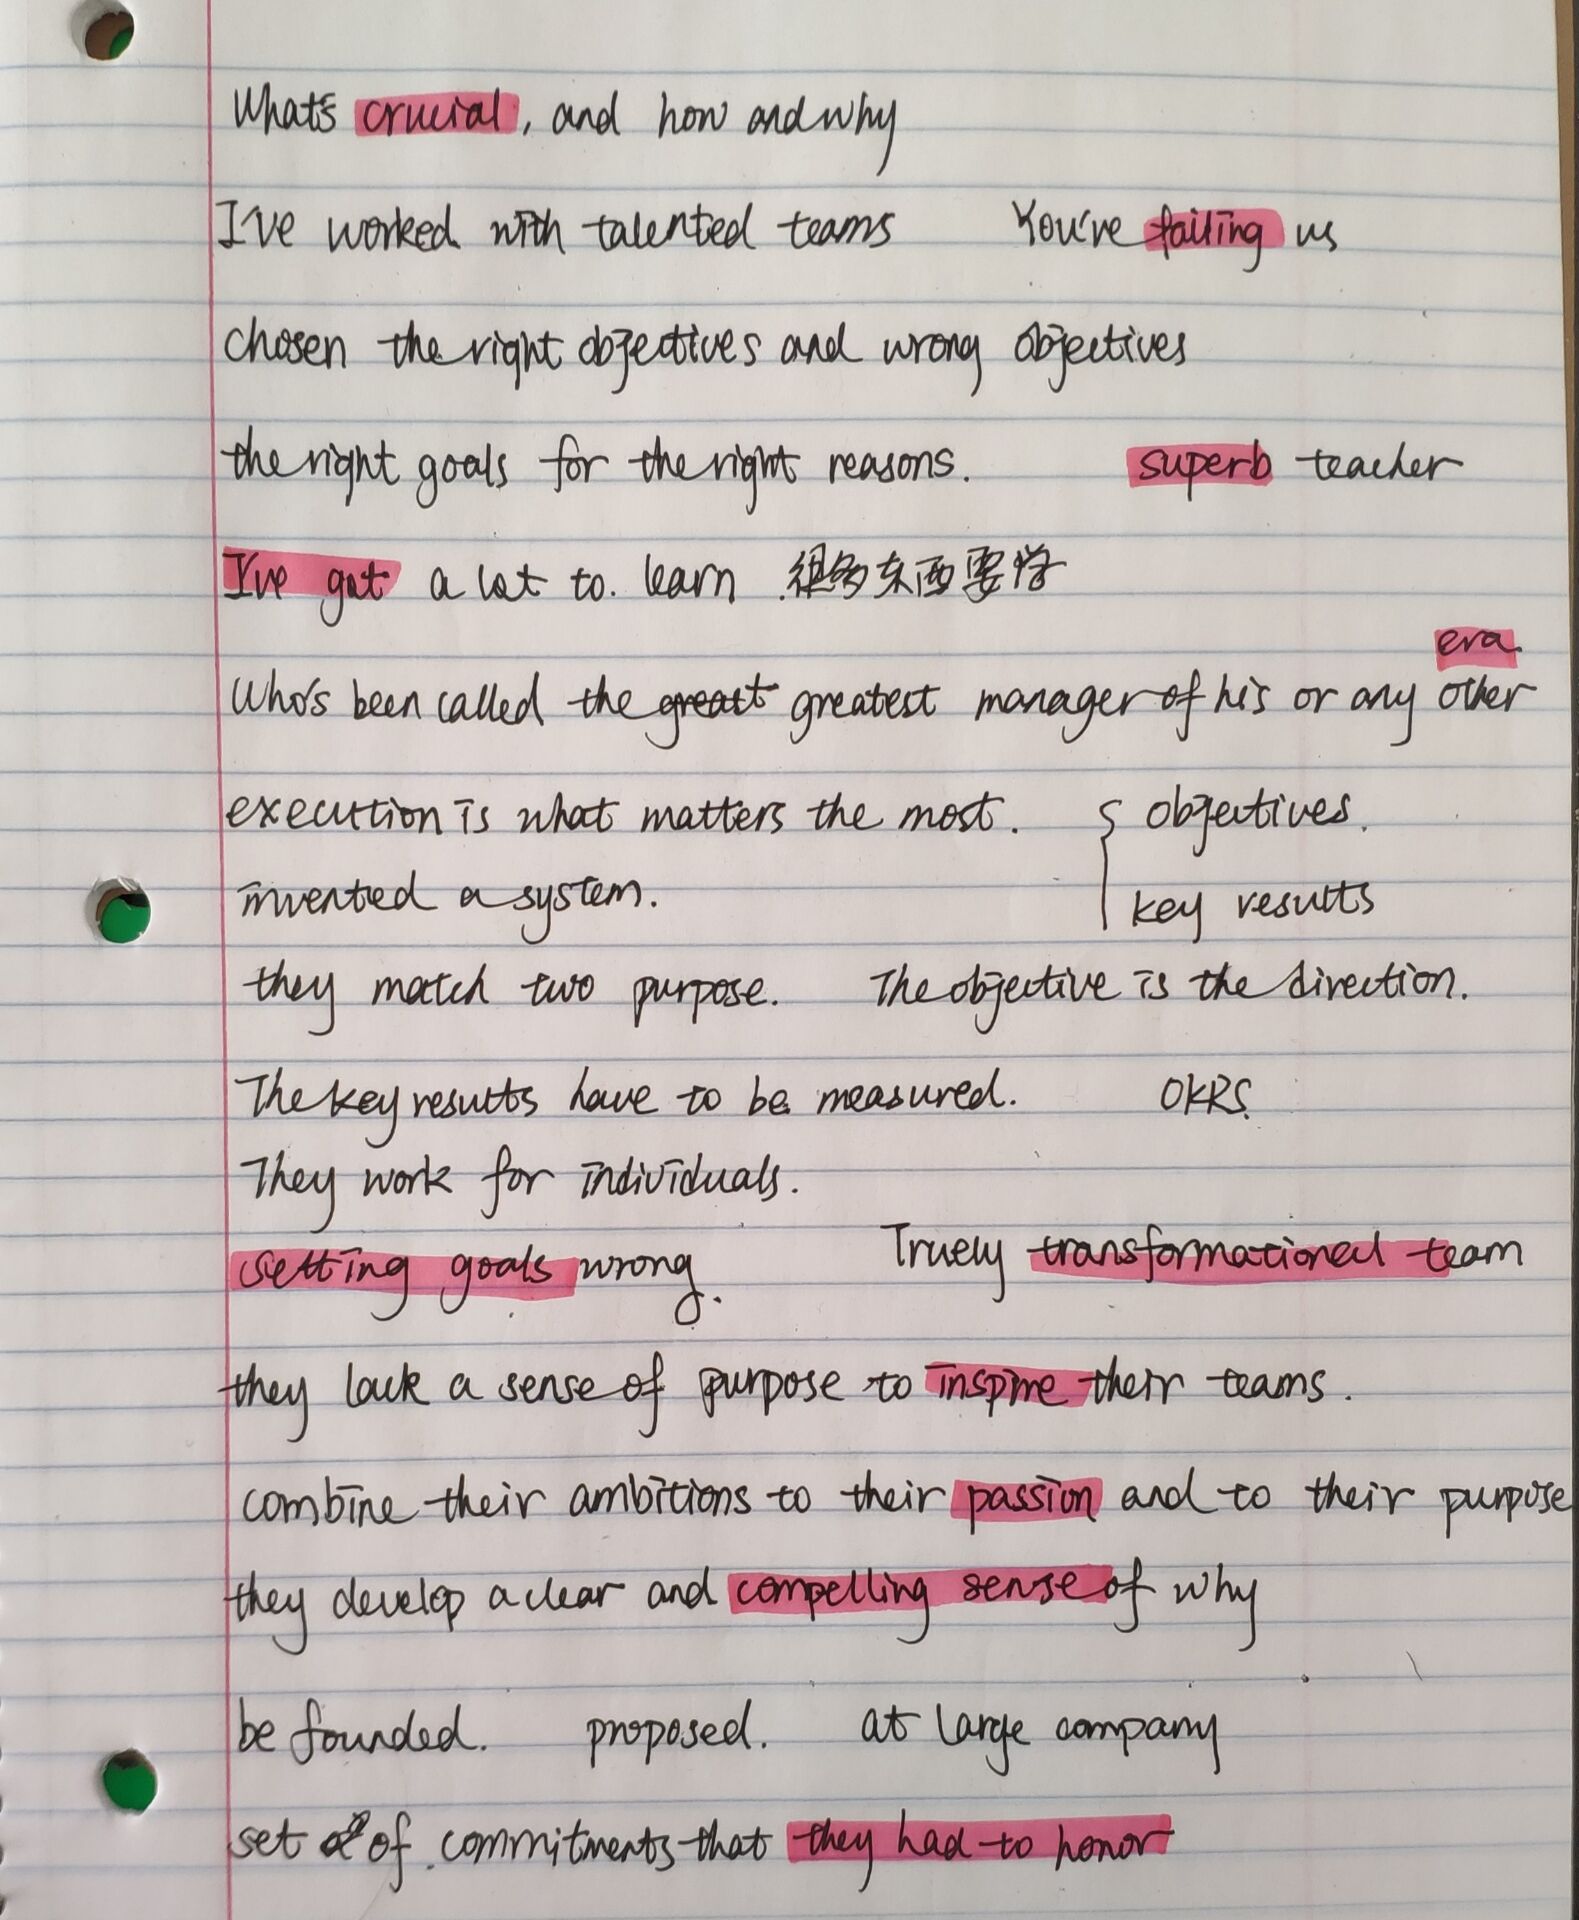 What's crucial, and how and why
I've worked with talented teams You're failing us
chosen the right objectives and wrong objectives
the right goals for the right reasons. superb teacher
I've got a lot to learn 很多东西要学
era
Who's been called the greatest manager of his or any other
execution is what matters the most. objectives.
invented a system. key results
they match two purpose. The objective is the direction.
The key results have to be measured. OKRS.
They work for individuals.
setting goals wrong. Truely transformational team
they lack a sense of purpose to inspire their teams.
combine their ambitions to their passion and to their purpose
they develop a clear and compelling sense of why
be founded. proposed. at large company
set of commitments that they had to honor